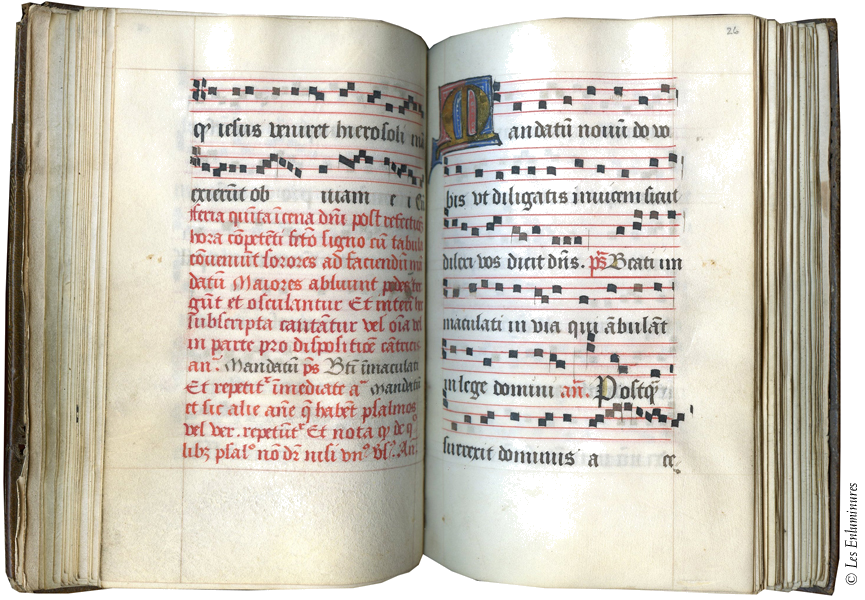 ꝙ iesus veniret hierosoli mā
exierūt ob uiam e i
feria quita ī cena dn̄i post
hora cōpetēti signo cū tabula
cōveniūt sorores ad faciendū
datū Maiores abluunt
gūt et osculantur Et
subscripta cantātur vel oīa vel
in parte pro dispositiōe
an̄. Mandatū p̄s Bt̄i īmaculati
Et repetitʳ īmediate aⁿ mandatū
et sic alie an̄e q̄ habēt psalmos
vel ver. repetūtʳ Et nota ꝙ de
psalꝰ nō dʳ nisi vnꝰ An.
26
Mandatū nouū do vo
bis vt diligatis inuicem sicut
dilexi vos dicit dn̄s. p̄s Beati im
maculati in via qui ābulāt
in lege domini an̄. Postꝙ
surrexit dominus a ce
© Les Enluminures